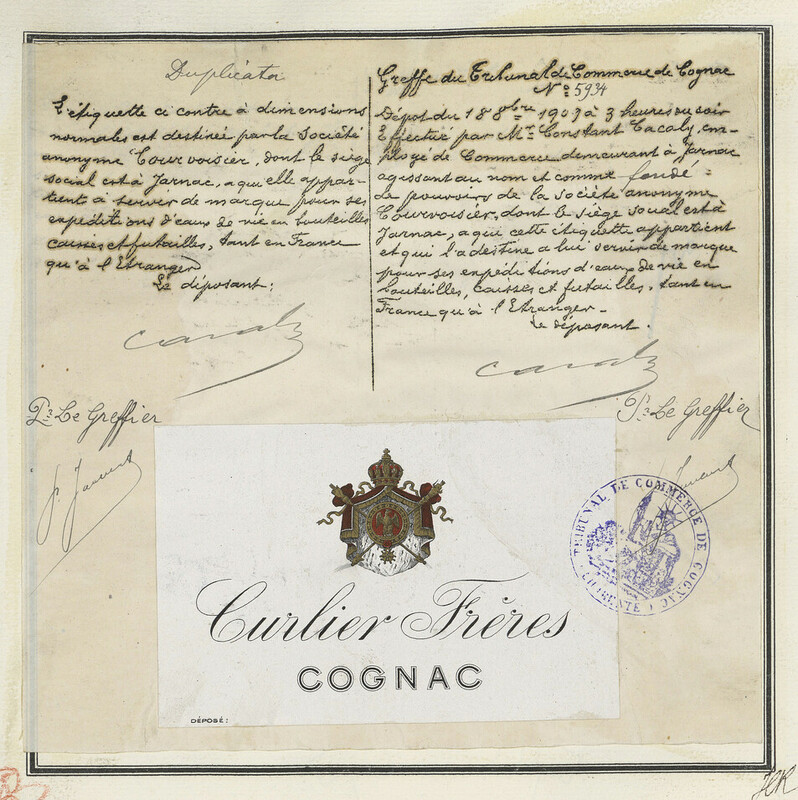 Duplicata
L'étiquette ci contre à dimensions
normales est destinée par la Société
anonyme Courvoisier, dont le siège
social est à Jarnac, a qui elle appar-
tient à servir de marque pour ses
expéditions d'eaux de vie en bouteilles
caisses et futailles, tant en France
qu'à l'Etranger
Le déposant:
Greffe du Tribunal de Commerce de Cognac
N° 5934
Dépot du 18 8bre 1909 à 3 heures du soir
Effectué par Mr. Constant Cacaly, em-
ployé de Commerce demeurant à Jarnac
agissant au nom et comme fondé =
de pouvoirs de la Société anonyme
Courvoisier, dont le siège social est à
Jarnac, a qui cette étiquette appartient
et qui l'a destine a lui servir de marque
pour ses expéditions d'eaux de vie en
bouteilles, caisses et futailles, tant en
France qu'à l'Etranger -
Le déposant.
Pr Le Greffier
Pr Le Greffier
TRIBUNAL DE COMMERCE DE COGNAC
CHARENTE
Curlier Frères
COGNAC
DÉPOSÉ: